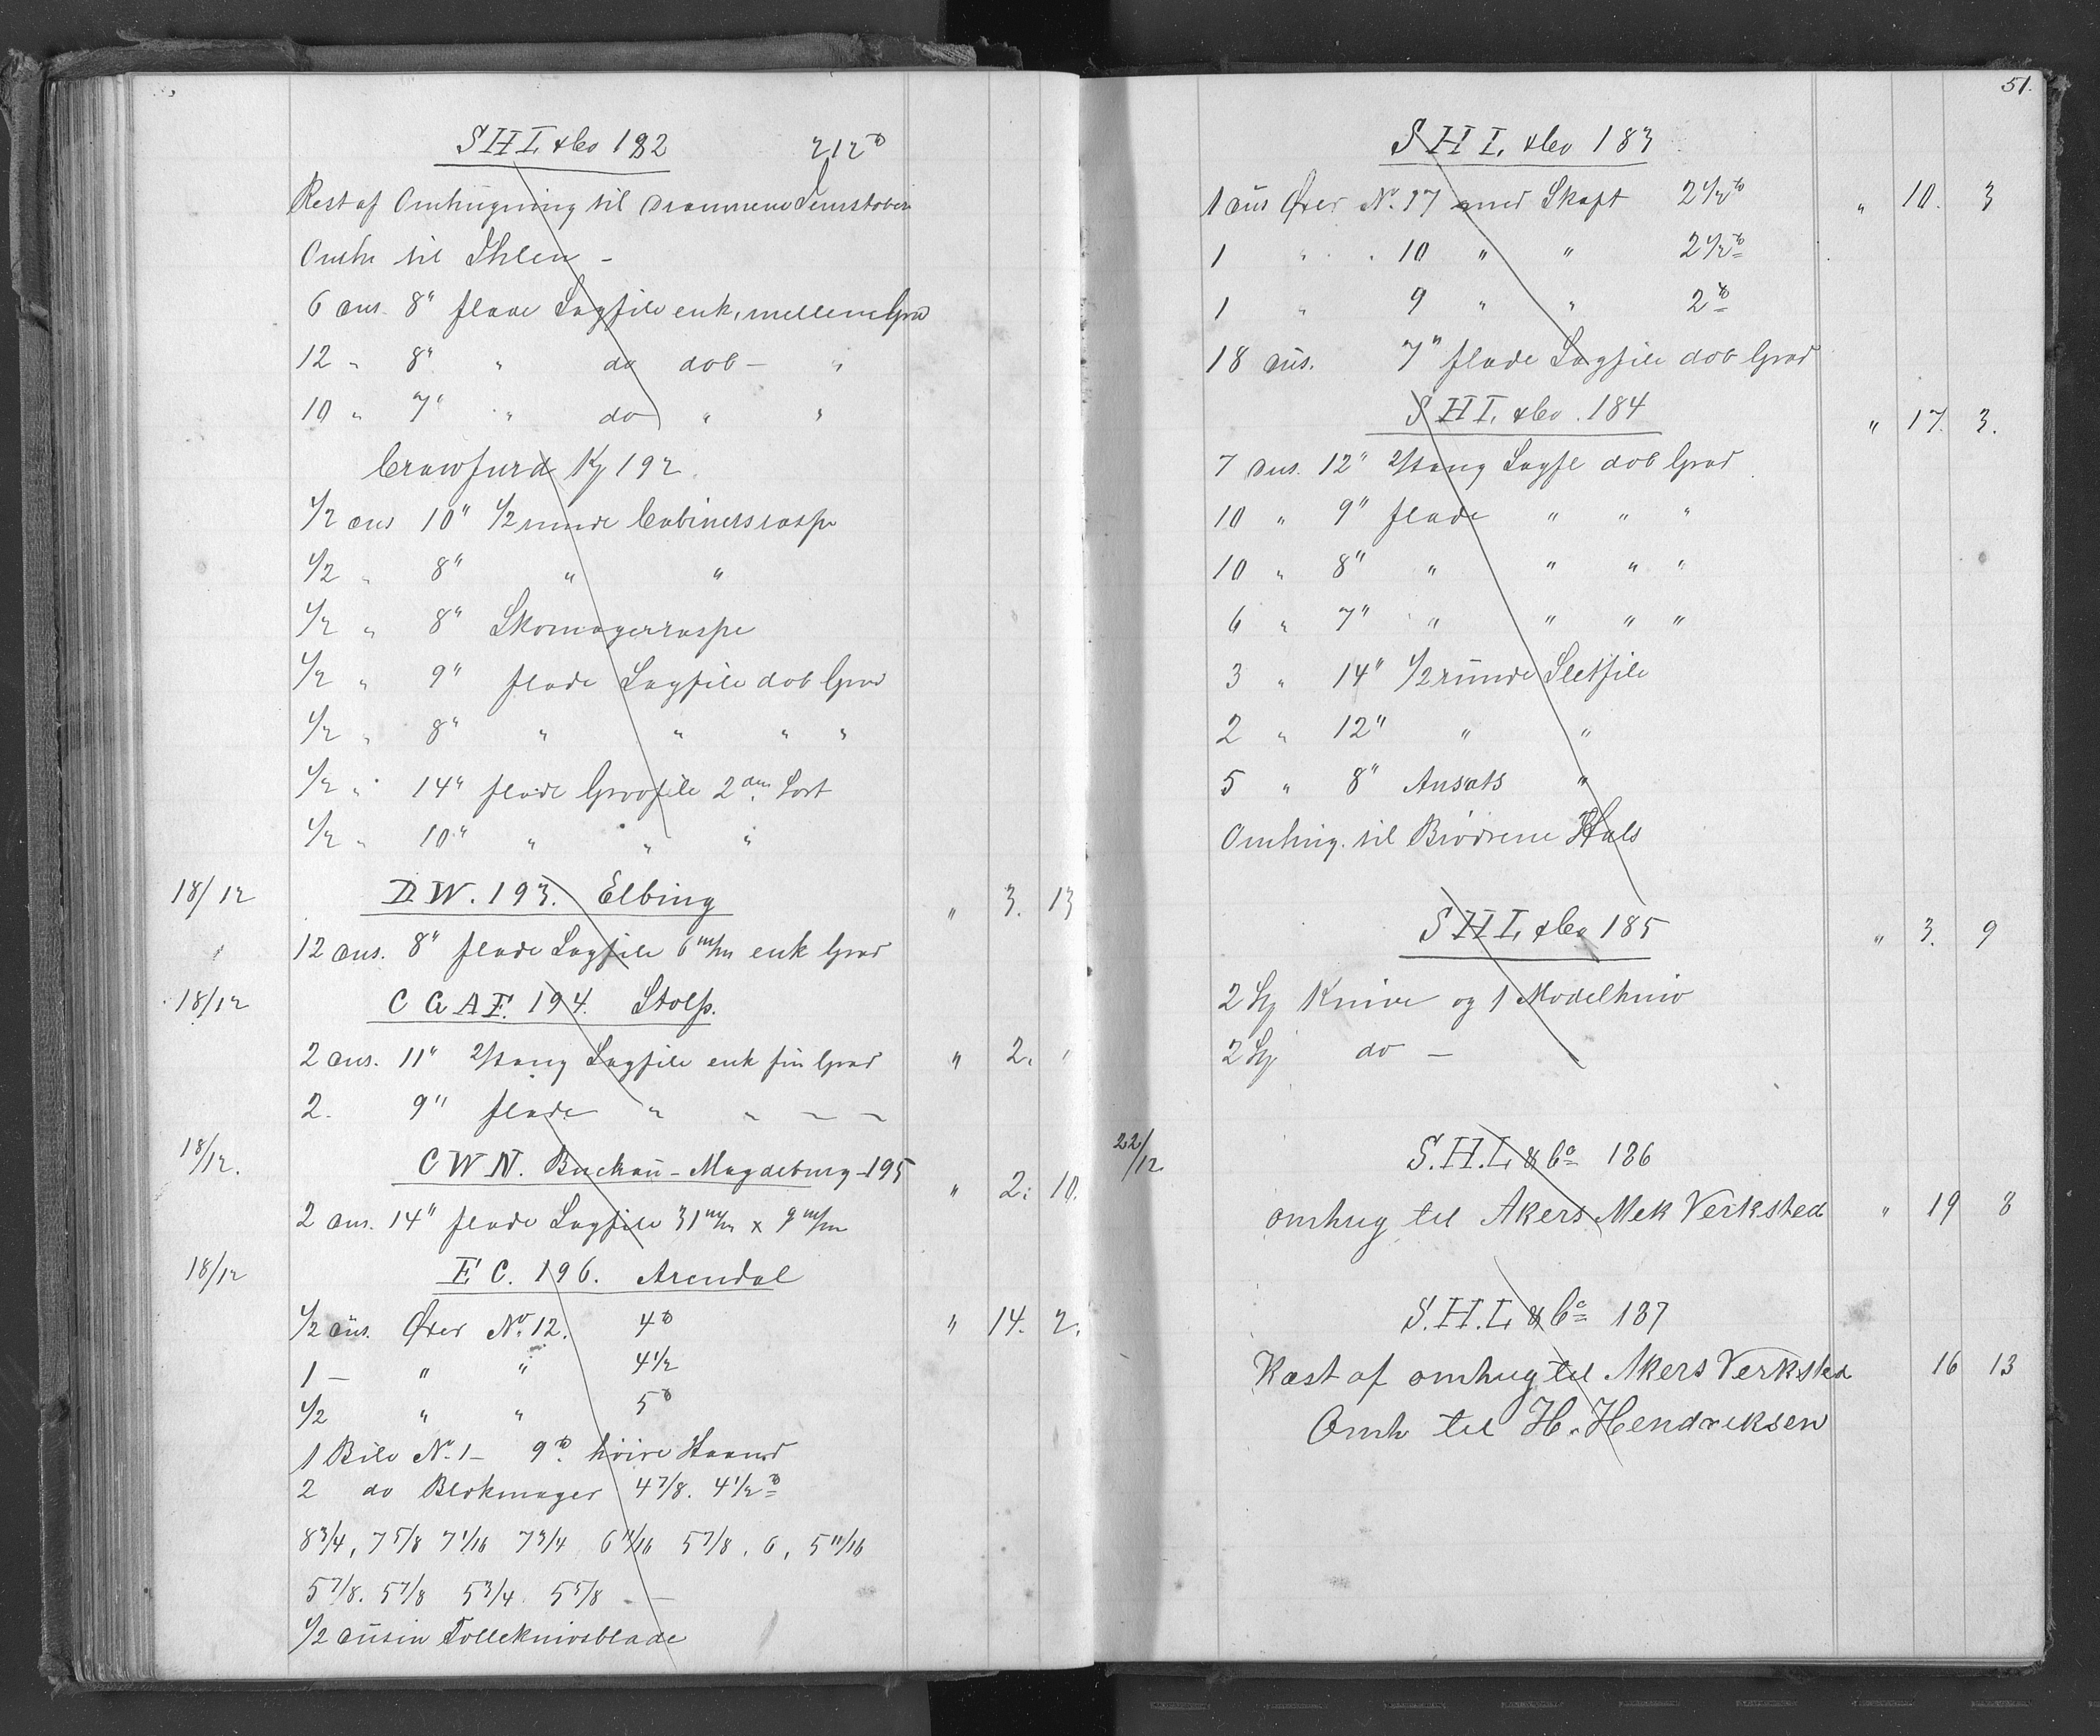 S H L & Co 182 212 ℔
Rest af Omhugning til Drammens Jernstøberi
Omh til Ihlen -
6 dus. 8" flade Sagfile enk, mellem Grad
12 " 8" " do dob - "
10 " 7" " do " "
Crawfurd Kj 192.
1/2 dus 10" 1/2 runde Cabinetsraspe
1/2 " 8" " "
1/2 " 8" Skomagerraspe
1/2 " 9" flade Sagfile dob Grad
1/2 " 8" " " " "
1/2 " 14" flade Grovfile 2den Sort
1/2 " 10" " " "
18/12 D. W. 193. Elbing " 3. 13
12 dus. 8" flade Sagfile 6 m/m enk Grad
18/12 C G A F. 194. Stolp.
2 dus. 11" 2/kang Sagfile enk fin Grad " 2. "
2. 9" flade " " - -
18/12. C W N. Buckau - Magdeburg - 195 " 2. 10.
2 dus. 14" flade Sagfile 31 m/m x 9 m/m
18/12 E C. 196. Arendal
1/2 dus. Øxer No. 12. 4 ℔ " 14. 2.
1 - " " 4 1/2
1/2 " " 5 ℔
1 Bile No. 1 - 9 ℔. höire Haand
2 do Blokmager 4 7/8. 4 1/2 ℔
8 3/4, 7 5/8 7 1/16 7 3/4 6 11/16 5 7/8. 6, 5 11/16
5 7/8. 5 7/8 5 3/4. 5 5/8 - -
1/2 dusin Tolleknivsblade
51.
S H L & Co 183
1 dus Øxer No. 17 med Skaft 2 1/2 ℔ " 10. 3
1 " " 10 " " 2 1/2 ℔
1 " 9 " " 2 ℔
18 dus. 7" flade Sagfile dob Grad
S H L & Co. 184 " 17. 3.
7 dus. 12" 2/kang Sagfl dob Grad
10 " 9" flade " " "
10 " 8" " " " "
6 " 7" " " " "
3 " 14" 1/2 runde Sletfile
2 " 12" " "
5 " 8" Ansats "
Omhug. til Brødrene Hals
S H L & Co 185 " 3. 9
2 Hj Knive og 1 Modelkniv
2 Hj do -
22/12 S. H. L & Co 186
omhug til Akers Mek Verksted " 19 8
S. H. L & Co 187
Ræst af omhug til Akers Verksted 16 13
Omh til H. Hendriksen